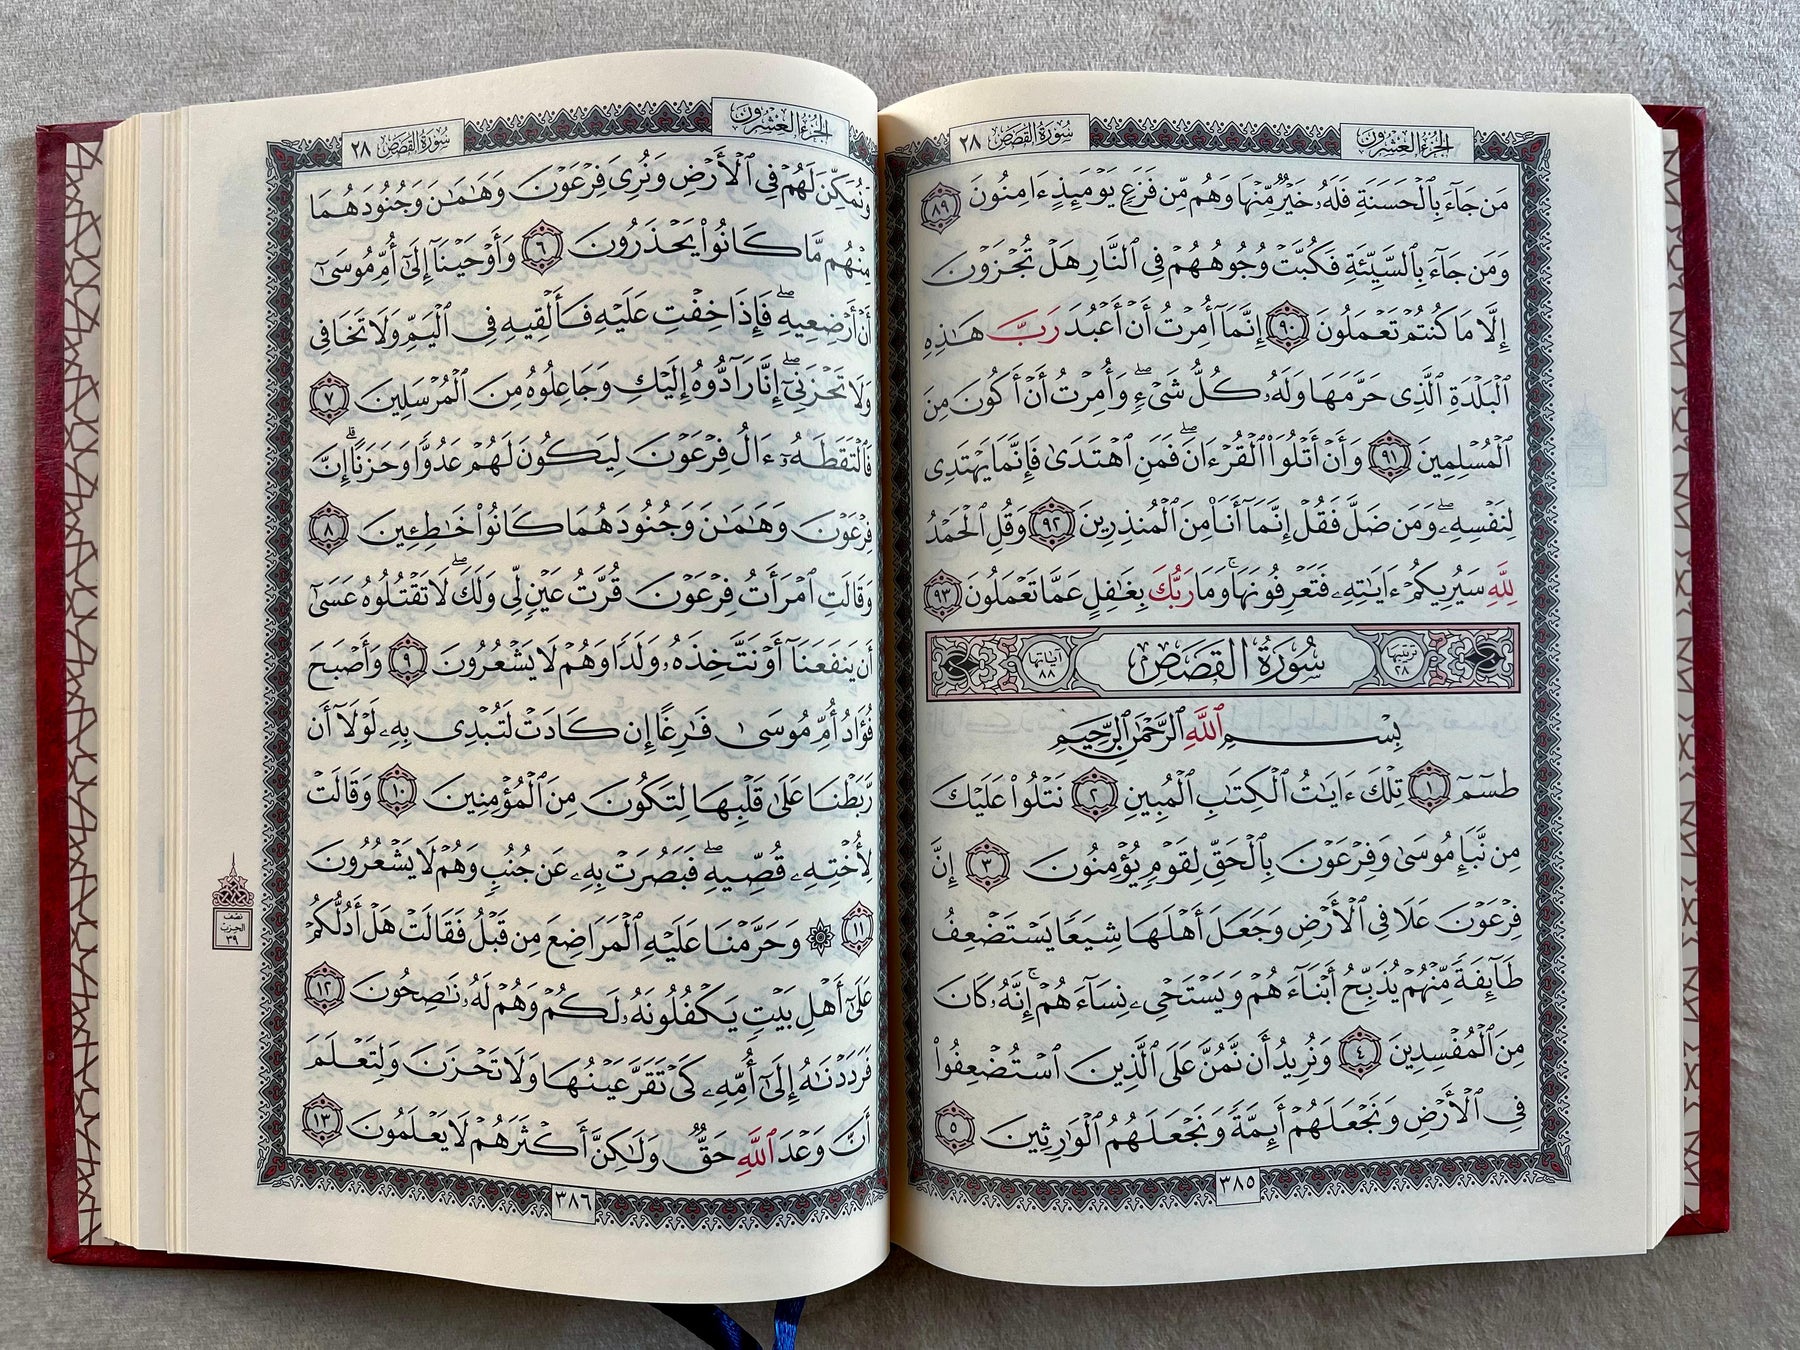 الجزء العشرون
سورة القصص ٢٨
مَن جَآءَ بِٱلْحَسَنَةِ فَلَهُۥ خَيْرٌ مِّنْهَا وَهُم مِّن فَزَعٍ يَوْمَئِذٍ ءَامِنُونَ ٨٩
وَمَن جَآءَ بِٱلسَّيِّئَةِ فَكُبَّتْ وُجُوهُهُمْ فِى ٱلنَّارِ هَلْ تُجْزَوْنَ
إِلَّا مَا كُنتُمْ تَعْمَلُونَ ٩٠ إِنَّمَآ أُمِرْتُ أَنْ أَعْبُدَ رَبَّ هَٰذِهِ
ٱلْبَلْدَةِ ٱلَّذِى حَرَّمَهَا وَلَهُۥ كُلُّ شَىْءٍۖ وَأُمِرْتُ أَنْ أَكُونَ مِنَ
ٱلْمُسْلِمِينَ ٩١ وَأَنْ أَتْلُوَا۟ ٱلْقُرْءَانَۖ فَمَنِ ٱهْتَدَىٰ فَإِنَّمَا يَهْتَدِى
لِنَفْسِهِۦۖ وَمَن ضَلَّ فَقُلْ إِنَّمَآ أَنَا۠ مِنَ ٱلْمُنذِرِينَ ٩٢ وَقُلِ ٱلْحَمْدُ
لِلَّهِ سَيُرِيكُمْ ءَايَٰتِهِۦ فَتَعْرِفُونَهَاۚ وَمَا رَبُّكَ بِغَٰفِلٍ عَمَّا تَعْمَلُونَ ٩٣
ترتيبها ٢٨ سُورَةُ القَصَصِ آياتها ٨٨
بِسْمِ ٱللَّهِ ٱلرَّحْمَٰنِ ٱلرَّحِيمِ
طسٓمٓ ١ تِلْكَ ءَايَٰتُ ٱلْكِتَٰبِ ٱلْمُبِينِ ٢ نَتْلُوا۟ عَلَيْكَ
مِن نَّبَإِ مُوسَىٰ وَفِرْعَوْنَ بِٱلْحَقِّ لِقَوْمٍ يُؤْمِنُونَ ٣ إِنَّ
فِرْعَوْنَ عَلَا فِى ٱلْأَرْضِ وَجَعَلَ أَهْلَهَا شِيَعًا يَسْتَضْعِفُ
طَآئِفَةً مِّنْهُمْ يُذَبِّحُ أَبْنَآءَهُمْ وَيَسْتَحْىِۦ نِسَآءَهُمْۚ إِنَّهُۥ كَانَ
مِنَ ٱلْمُفْسِدِينَ ٤ وَنُرِيدُ أَن نَّمُنَّ عَلَى ٱلَّذِينَ ٱسْتُضْعِفُوا۟
فِى ٱلْأَرْضِ وَنَجْعَلَهُمْ أَئِمَّةً وَنَجْعَلَهُمُ ٱلْوَٰرِثِينَ ٥
٣٨٥
الجزء العشرون
سورة القصص ٢٨
وَنُمَكِّنَ لَهُمْ فِى ٱلْأَرْضِ وَنُرِىَ فِرْعَوْنَ وَهَٰمَٰنَ وَجُنُودَهُمَا
مِنْهُم مَّا كَانُوا۟ يَحْذَرُونَ ٦ وَأَوْحَيْنَآ إِلَىٰٓ أُمِّ مُوسَىٰٓ
أَنْ أَرْضِعِيهِۖ فَإِذَا خِفْتِ عَلَيْهِ فَأَلْقِيهِ فِى ٱلْيَمِّ وَلَا تَخَافِى
وَلَا تَحْزَنِىٓۖ إِنَّا رَآدُّوهُ إِلَيْكِ وَجَاعِلُوهُ مِنَ ٱلْمُرْسَلِينَ ٧
فَٱلْتَقَطَهُۥٓ ءَالُ فِرْعَوْنَ لِيَكُونَ لَهُمْ عَدُوًّا وَحَزَنًاۗ إِنَّ
فِرْعَوْنَ وَهَٰمَٰنَ وَجُنُودَهُمَا كَانُوا۟ خَٰطِـِٔينَ ٨
وَقَالَتِ ٱمْرَأَتُ فِرْعَوْنَ قُرَّتُ عَيْنٍ لِّى وَلَكَۖ لَا تَقْتُلُوهُ عَسَىٰٓ
أَن يَنفَعَنَآ أَوْ نَتَّخِذَهُۥ وَلَدًا وَهُمْ لَا يَشْعُرُونَ ٩ وَأَصْبَحَ
فُؤَادُ أُمِّ مُوسَىٰ فَٰرِغًا إِن كَادَتْ لَتُبْدِى بِهِۦ لَوْلَآ أَن
رَّبَطْنَا عَلَىٰ قَلْبِهَا لِتَكُونَ مِنَ ٱلْمُؤْمِنِينَ ١٠ وَقَالَتْ
لِأُخْتِهِۦ قُصِّيهِۖ فَبَصُرَتْ بِهِۦ عَن جُنُبٍ وَهُمْ لَا يَشْعُرُونَ
١١ ۞ وَحَرَّمْنَا عَلَيْهِ ٱلْمَرَاضِعَ مِن قَبْلُ فَقَالَتْ هَلْ أَدُلُّكُمْ
عَلَىٰٓ أَهْلِ بَيْتٍ يَكْفُلُونَهُۥ لَكُمْ وَهُمْ لَهُۥ نَٰصِحُونَ ١٢
فَرَدَدْنَٰهُ إِلَىٰٓ أُمِّهِۦ كَىْ تَقَرَّ عَيْنُهَا وَلَا تَحْزَنَ وَلِتَعْلَمَ
أَنَّ وَعْدَ ٱللَّهِ حَقٌّ وَلَٰكِنَّ أَكْثَرَهُمْ لَا يَعْلَمُونَ ١٣
نصف
الحزب
٣٩
٣٨٦